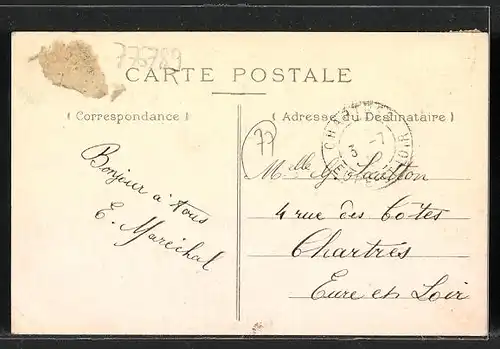 775789
CARTE POSTALE
( Correspondance )
( Adresse du Destinataire )
77
CHARTRES
3 -7
EURE
LOIR
Bonjour à tous
E. Maréchal
Melle G.
4 rue des Côtes
Chartres
Eure et Loir